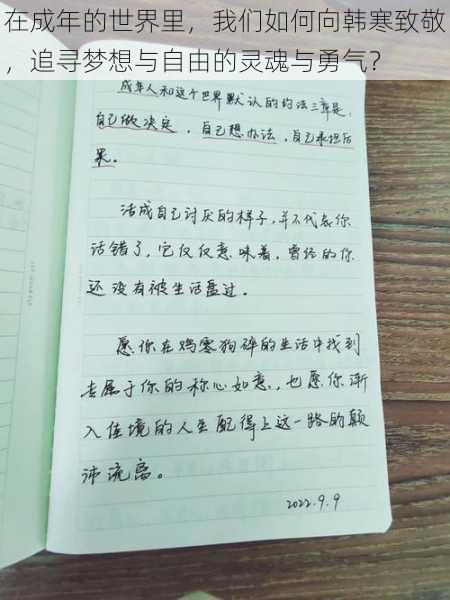 在成年的世界里，我们如何向韩寒致敬
，追寻梦想与自由的灵魂与勇气？
成年人和这个世界默认的约法三章是，
自己做决定，自己想办法，自己承担后
果。
活成自己讨厌的样子，并不代表你
活错了，它仅仅意味着，曾经的你
还没有被生活盘过。
愿你在鸡零狗碎的生活中找到
专属于你的称心如意，也愿你渐
入佳境的人生配得上这一路的颠
沛流离。
2022.9.9